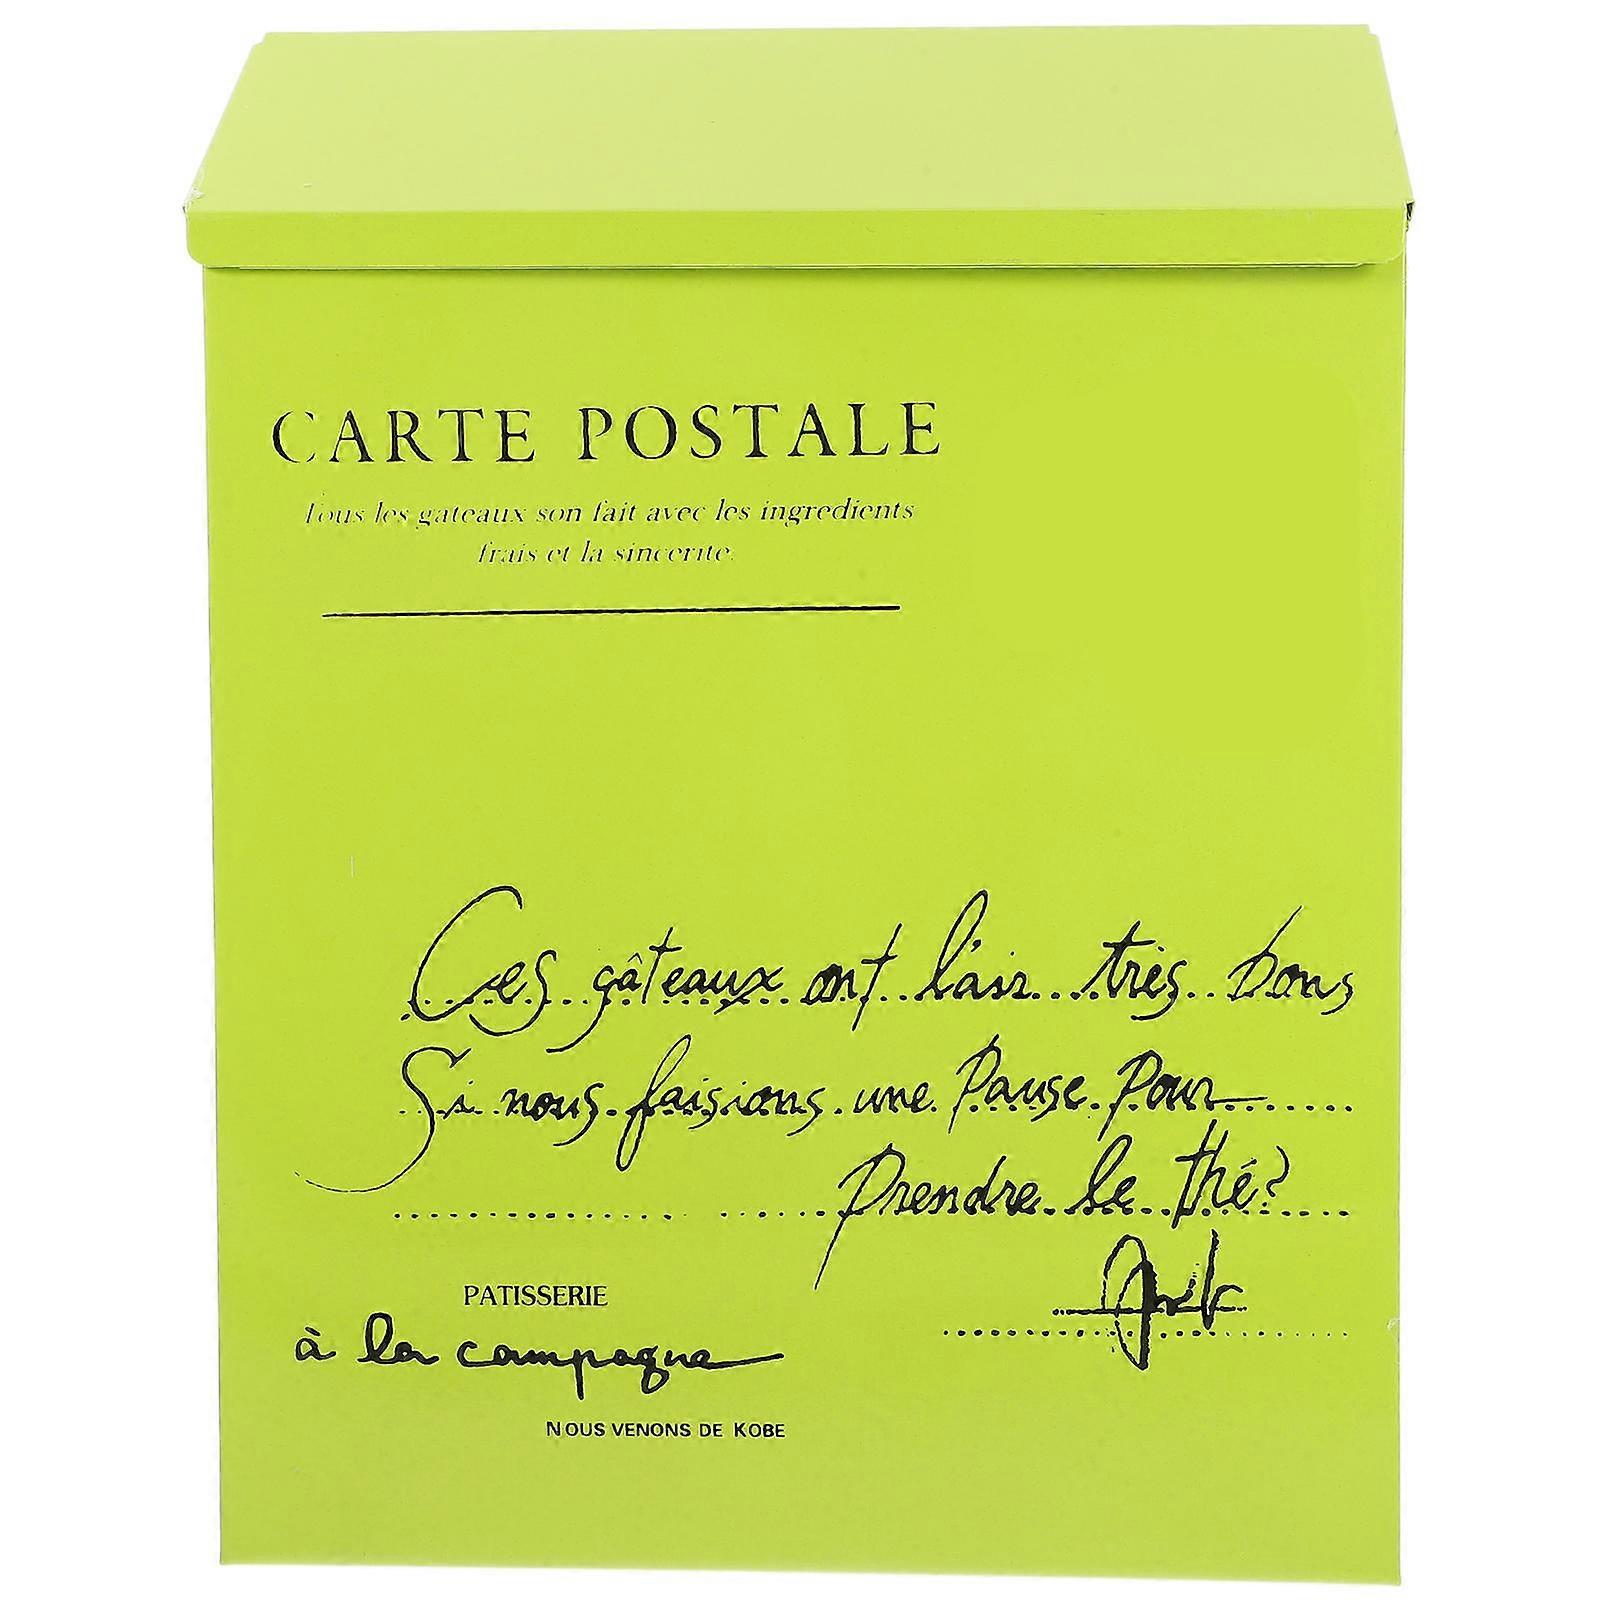 CARTE POSTALE
Tous les gateaux son fait avec les ingredients
frais et la sincerite.
Ces gâteaux ont l'air très bons
Si nous faisions une Pause Pour
Prendre le thé?
PATISSERIE
à la campagne
NOUS VENONS DE KOBE